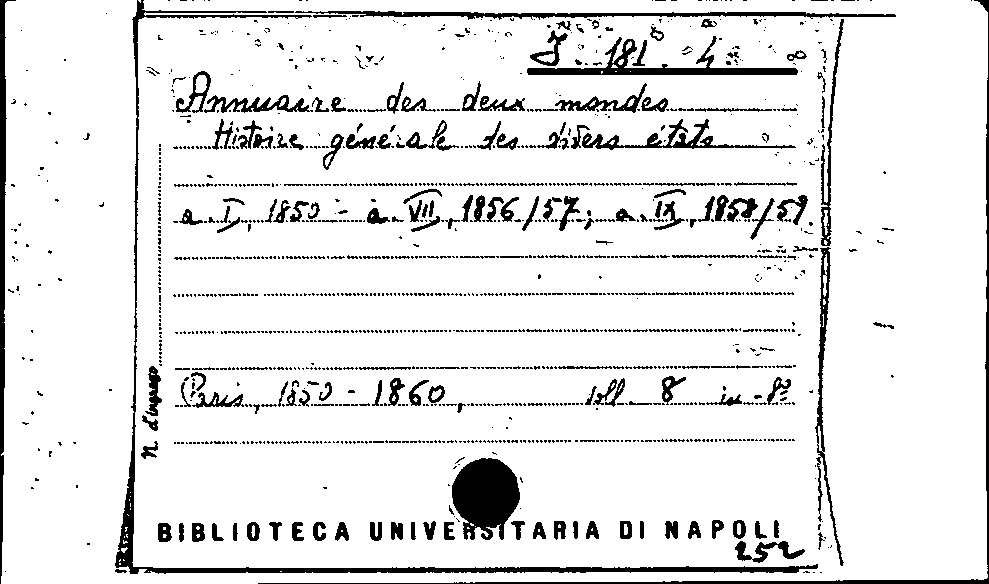 J. 181. 4.
Annuaire des deux mondes
Histoire générale des divers états
a. I, 1850 - a. VII, 1856/57; a. IX, 1858/59.
Paris, 1850 - 1860, voll. 8 in-8º
N. d'ingresso
BIBLIOTECA UNIVERSITARIA DI NAPOLI
252